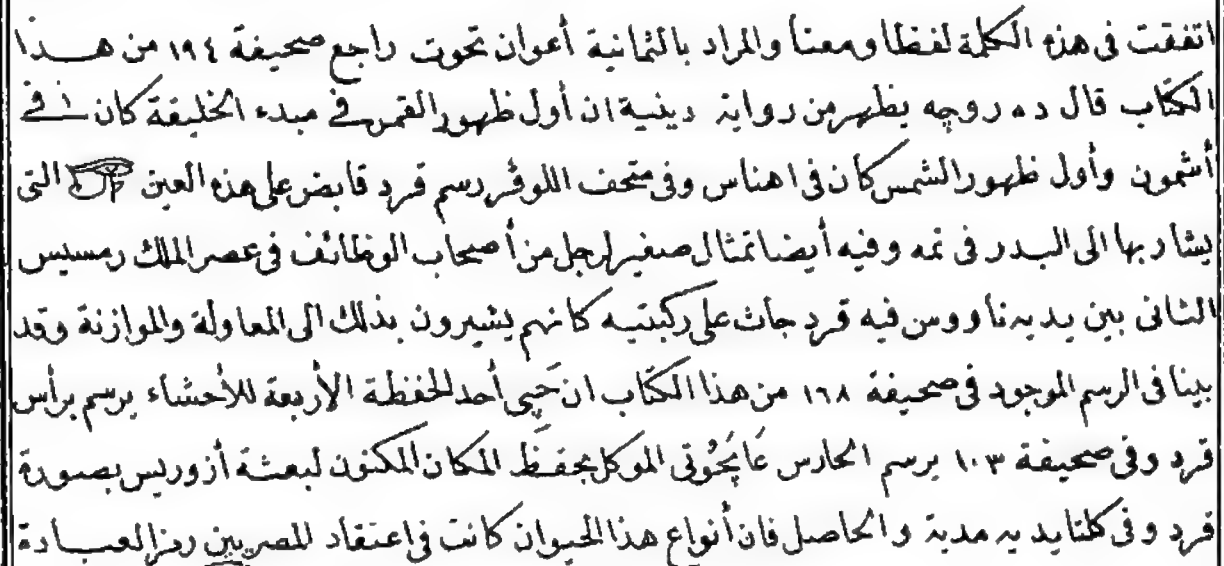 اتفقت فى هذه الكلمة لفظا ومعنا والمراد بالثمانية أعوان تحوت راجع صحيفة ١٩٤ من هـــذا
الكتاب قال ده روچه يظهر من رواية دينية ان أول ظهور القمر فى مبدء الخليقة كان فى
أشمون وأول ظهور الشمس كان فى اهناس وفى متحف اللوڤر رسم قرد قابض على هذه العين 𓂀 التى
يشار بها الى البدر فى تمه وفيه أيضا تمثال صغير لرجل من أصحاب الوظائف فى عصر الملك رمسيس
الثانى بين يديه ناووس فيه قرد جاث على ركبتيه كانهم يشيرون بذلك الى المعاولة والموازنة وقد
بينا فى الرسم الموجود فى صحيفة ١٦٨ من هذا الكتاب ان حَپِى أحد الحفظة الأربعة للأحشاء يرسم برأس
قرد وفى صحيفة ١٠٣ يرسم الحارس الموكل بحفـظ المكان المكنون لبعثة أزوريس بصورة
قرد وفى كلتا يديه مدية والحاصل فان أنواع هذا الحيوان كانت فى اعتقاد المصريين رمز العبــادة